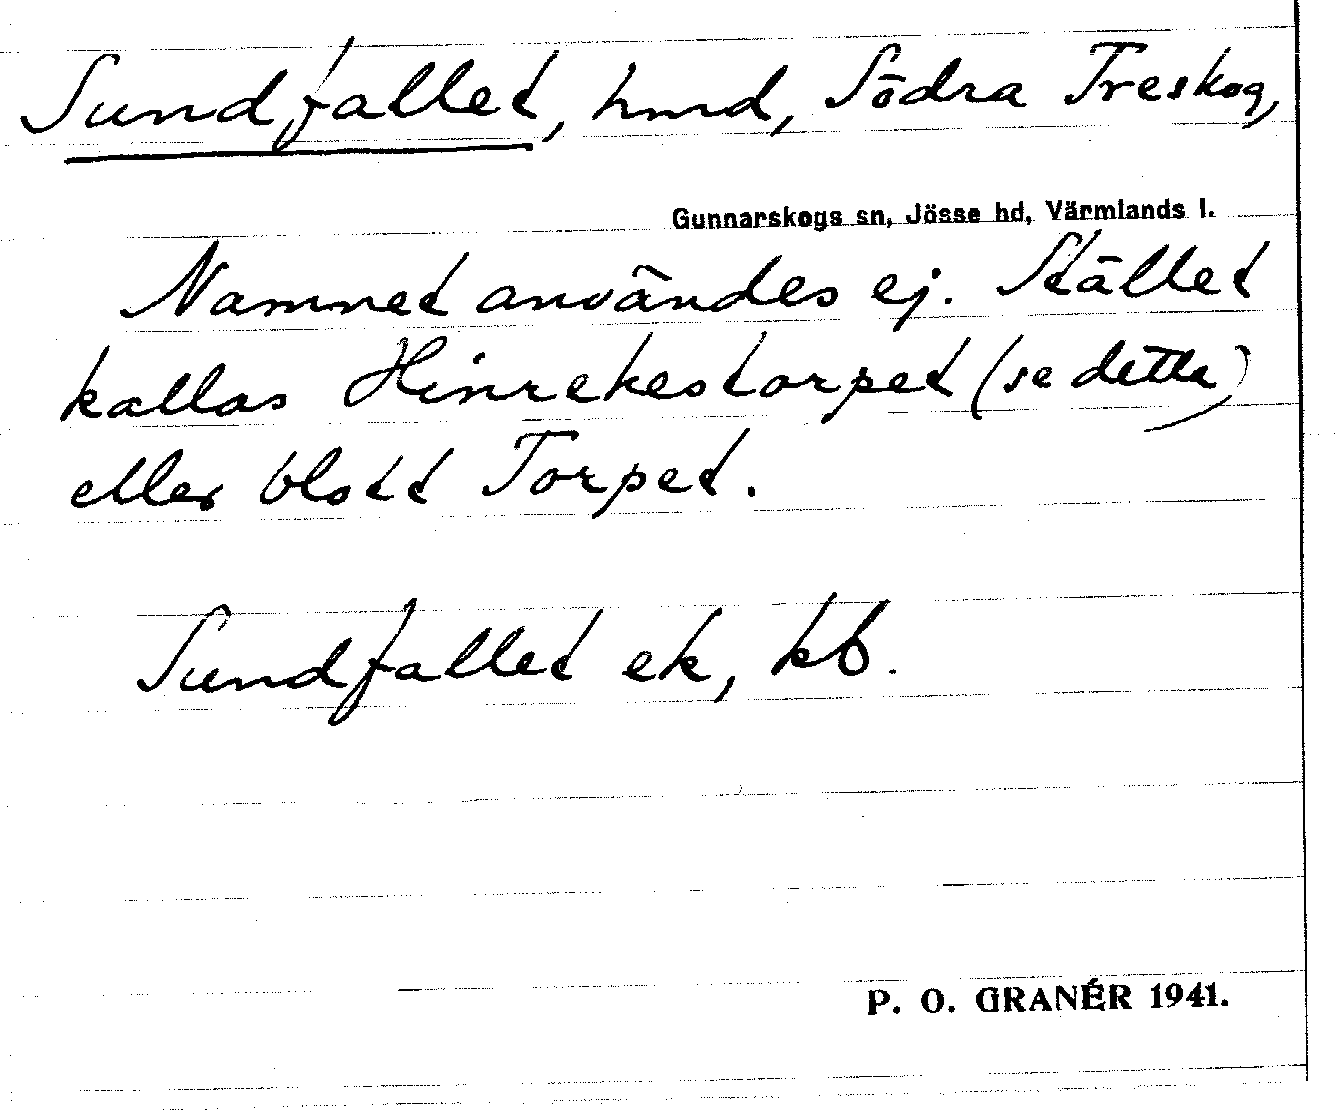 Sundfallet, hmd, Södra Treskog,
Gunnarskogs sn, Jösse hd, Värmlands l.
Namnet användes ej. Stället
kallas Hinrekestorpet (se detta)
eller blott Torpet.
Sundfallet ek, kb.
P. O. GRANÉR 1941.